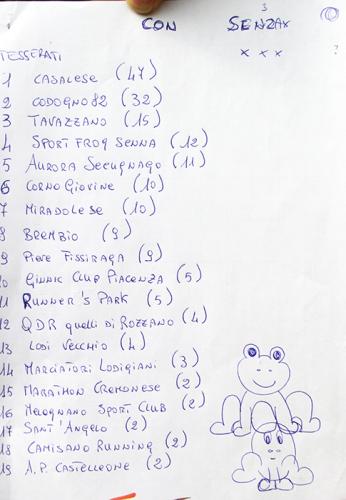 3
CON SENZA
TESSERATI x x x ?
1 CASALESE (47)
2 CODOGNO 82 (32)
3 TAVAZZANO (15)
4 SPORT FROG SENNA (12)
5 AURORA SECUGNAGO (11)
6 CORNO GIOVINE (10)
7 MIRADOLESE (10)
8 BREMBIO (9)
9 PIEVE FISSIRAGA (9)
10 GINNIC CLUB PIACENZA (5)
11 RUNNER'S PARK (5)
12 QDR quelli DI ROZZANO (4)
13 LODI VECCHIO (4)
14 MARCIATORI LODIGIANI (3)
15 MARATHON CREMONESE (2)
16 MELEGNANO SPORT CLUB (2)
17 SANT'ANGELO (2)
18 CAMISANO RUNNING (2)
19 A.P. CASTELLEONE (2)